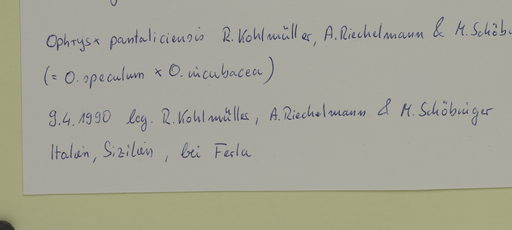 Ophrys x pantaliciensis R. Kohlmüller, A. Riechelmann & M. Schöb
(= O. speculum x O. incubacea)
9.4.1990 leg. R. Kohlmüller, A. Riechelmann & M. Schöbinger
Italien, Sizilien, bei Ferla